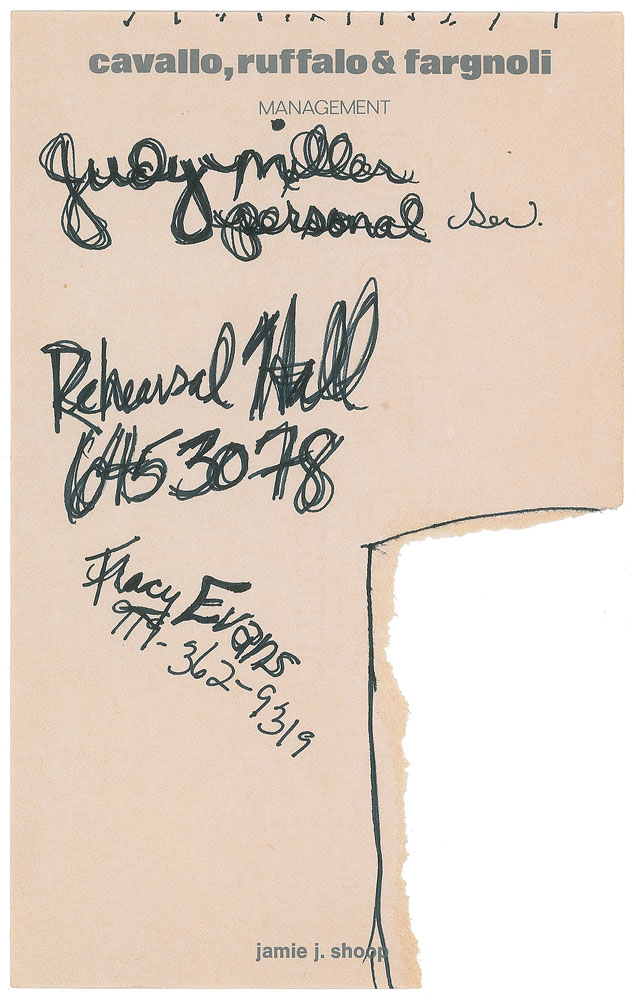 cavallo, ruffalo & fargnoli
MANAGEMENT
Judy Miller
personal Ser.
Rehearsal Hall
645 3078
Tracy Evans
979-362-9319
jamie j. shoop